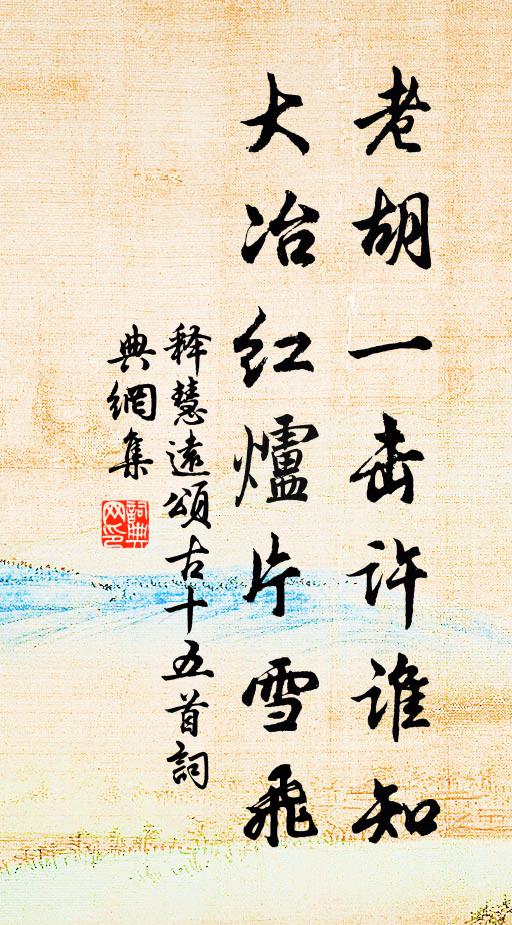 老胡一击许谁知
大冶红爐片雪飛
释慧遠頌古十五首詞
典網集
詞典网印